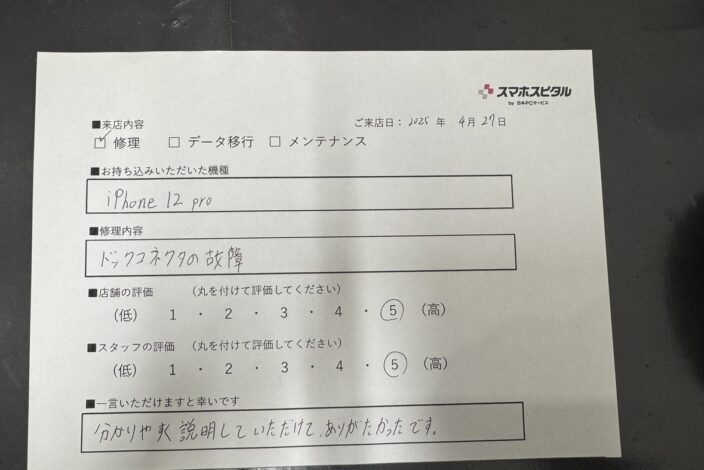 スマホスピタル
by 日本PCサービス
■来店内容
ご来店日：2025 年 4月 27日
☑ 修理 □ データ移行 □ メンテナンス
■お持ち込みいただいた機種
iPhone 12 pro
■修理内容
ドックコネクタの故障
■店舗の評価 （丸を付けて評価してください）
（低） 1 ・ 2 ・ 3 ・ 4 ・ 5 （高）
■スタッフの評価 （丸を付けて評価してください）
（低） 1 ・ 2 ・ 3 ・ 4 ・ 5 （高）
■一言いただけますと幸いです
分かりやすく説明していただけて、ありがたかったです。